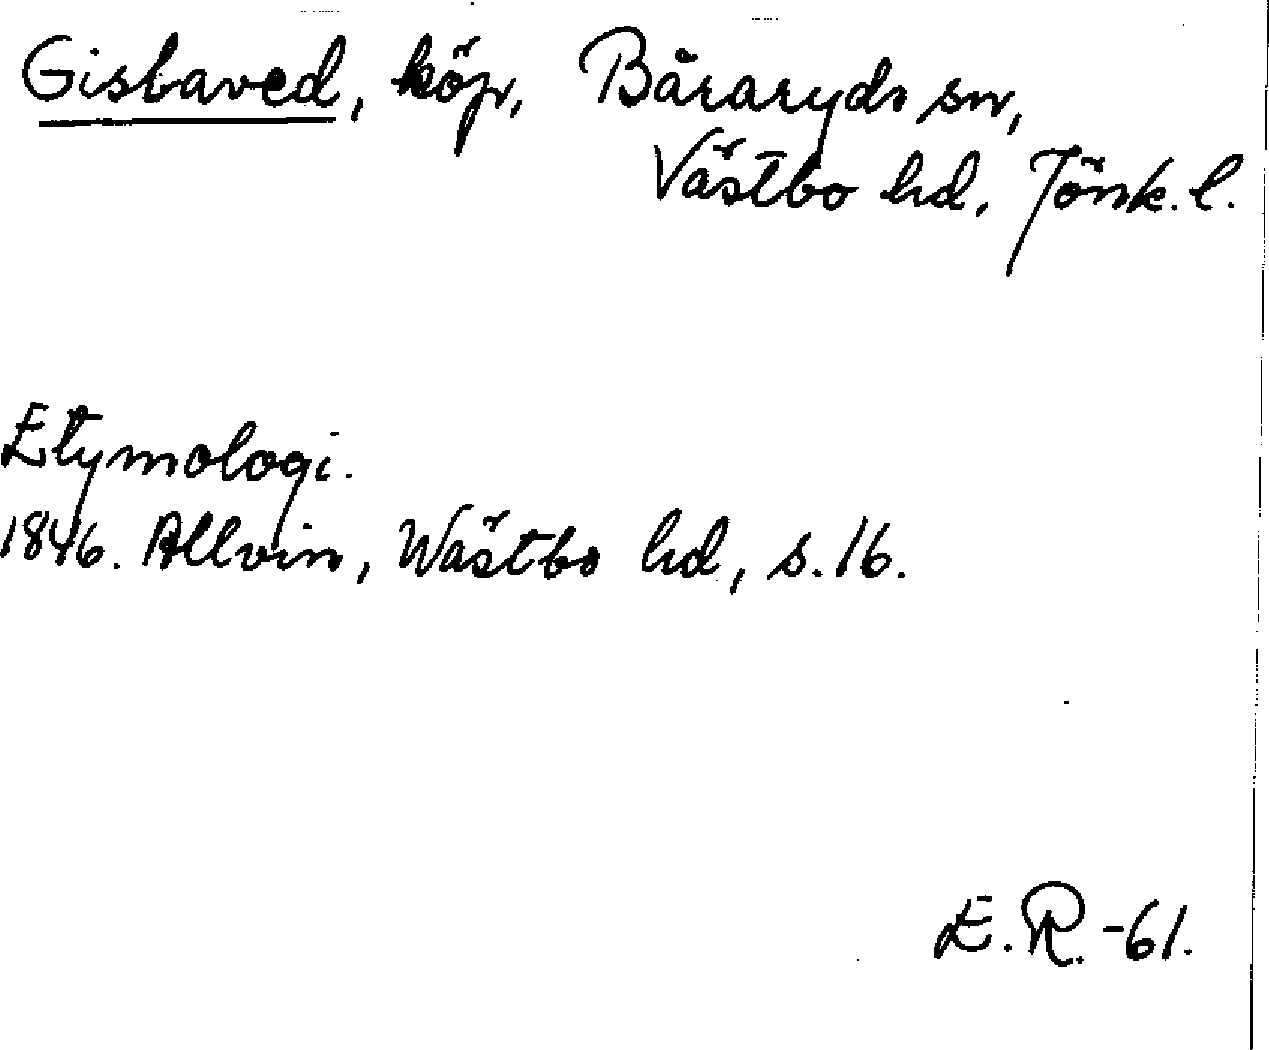 Gislaved, köp, Båraryds sn,
Västbo hd, Jönk. l.
Etymologi.
1846. Allvin, Wästbo hd, s. 16.
E. R. -61.